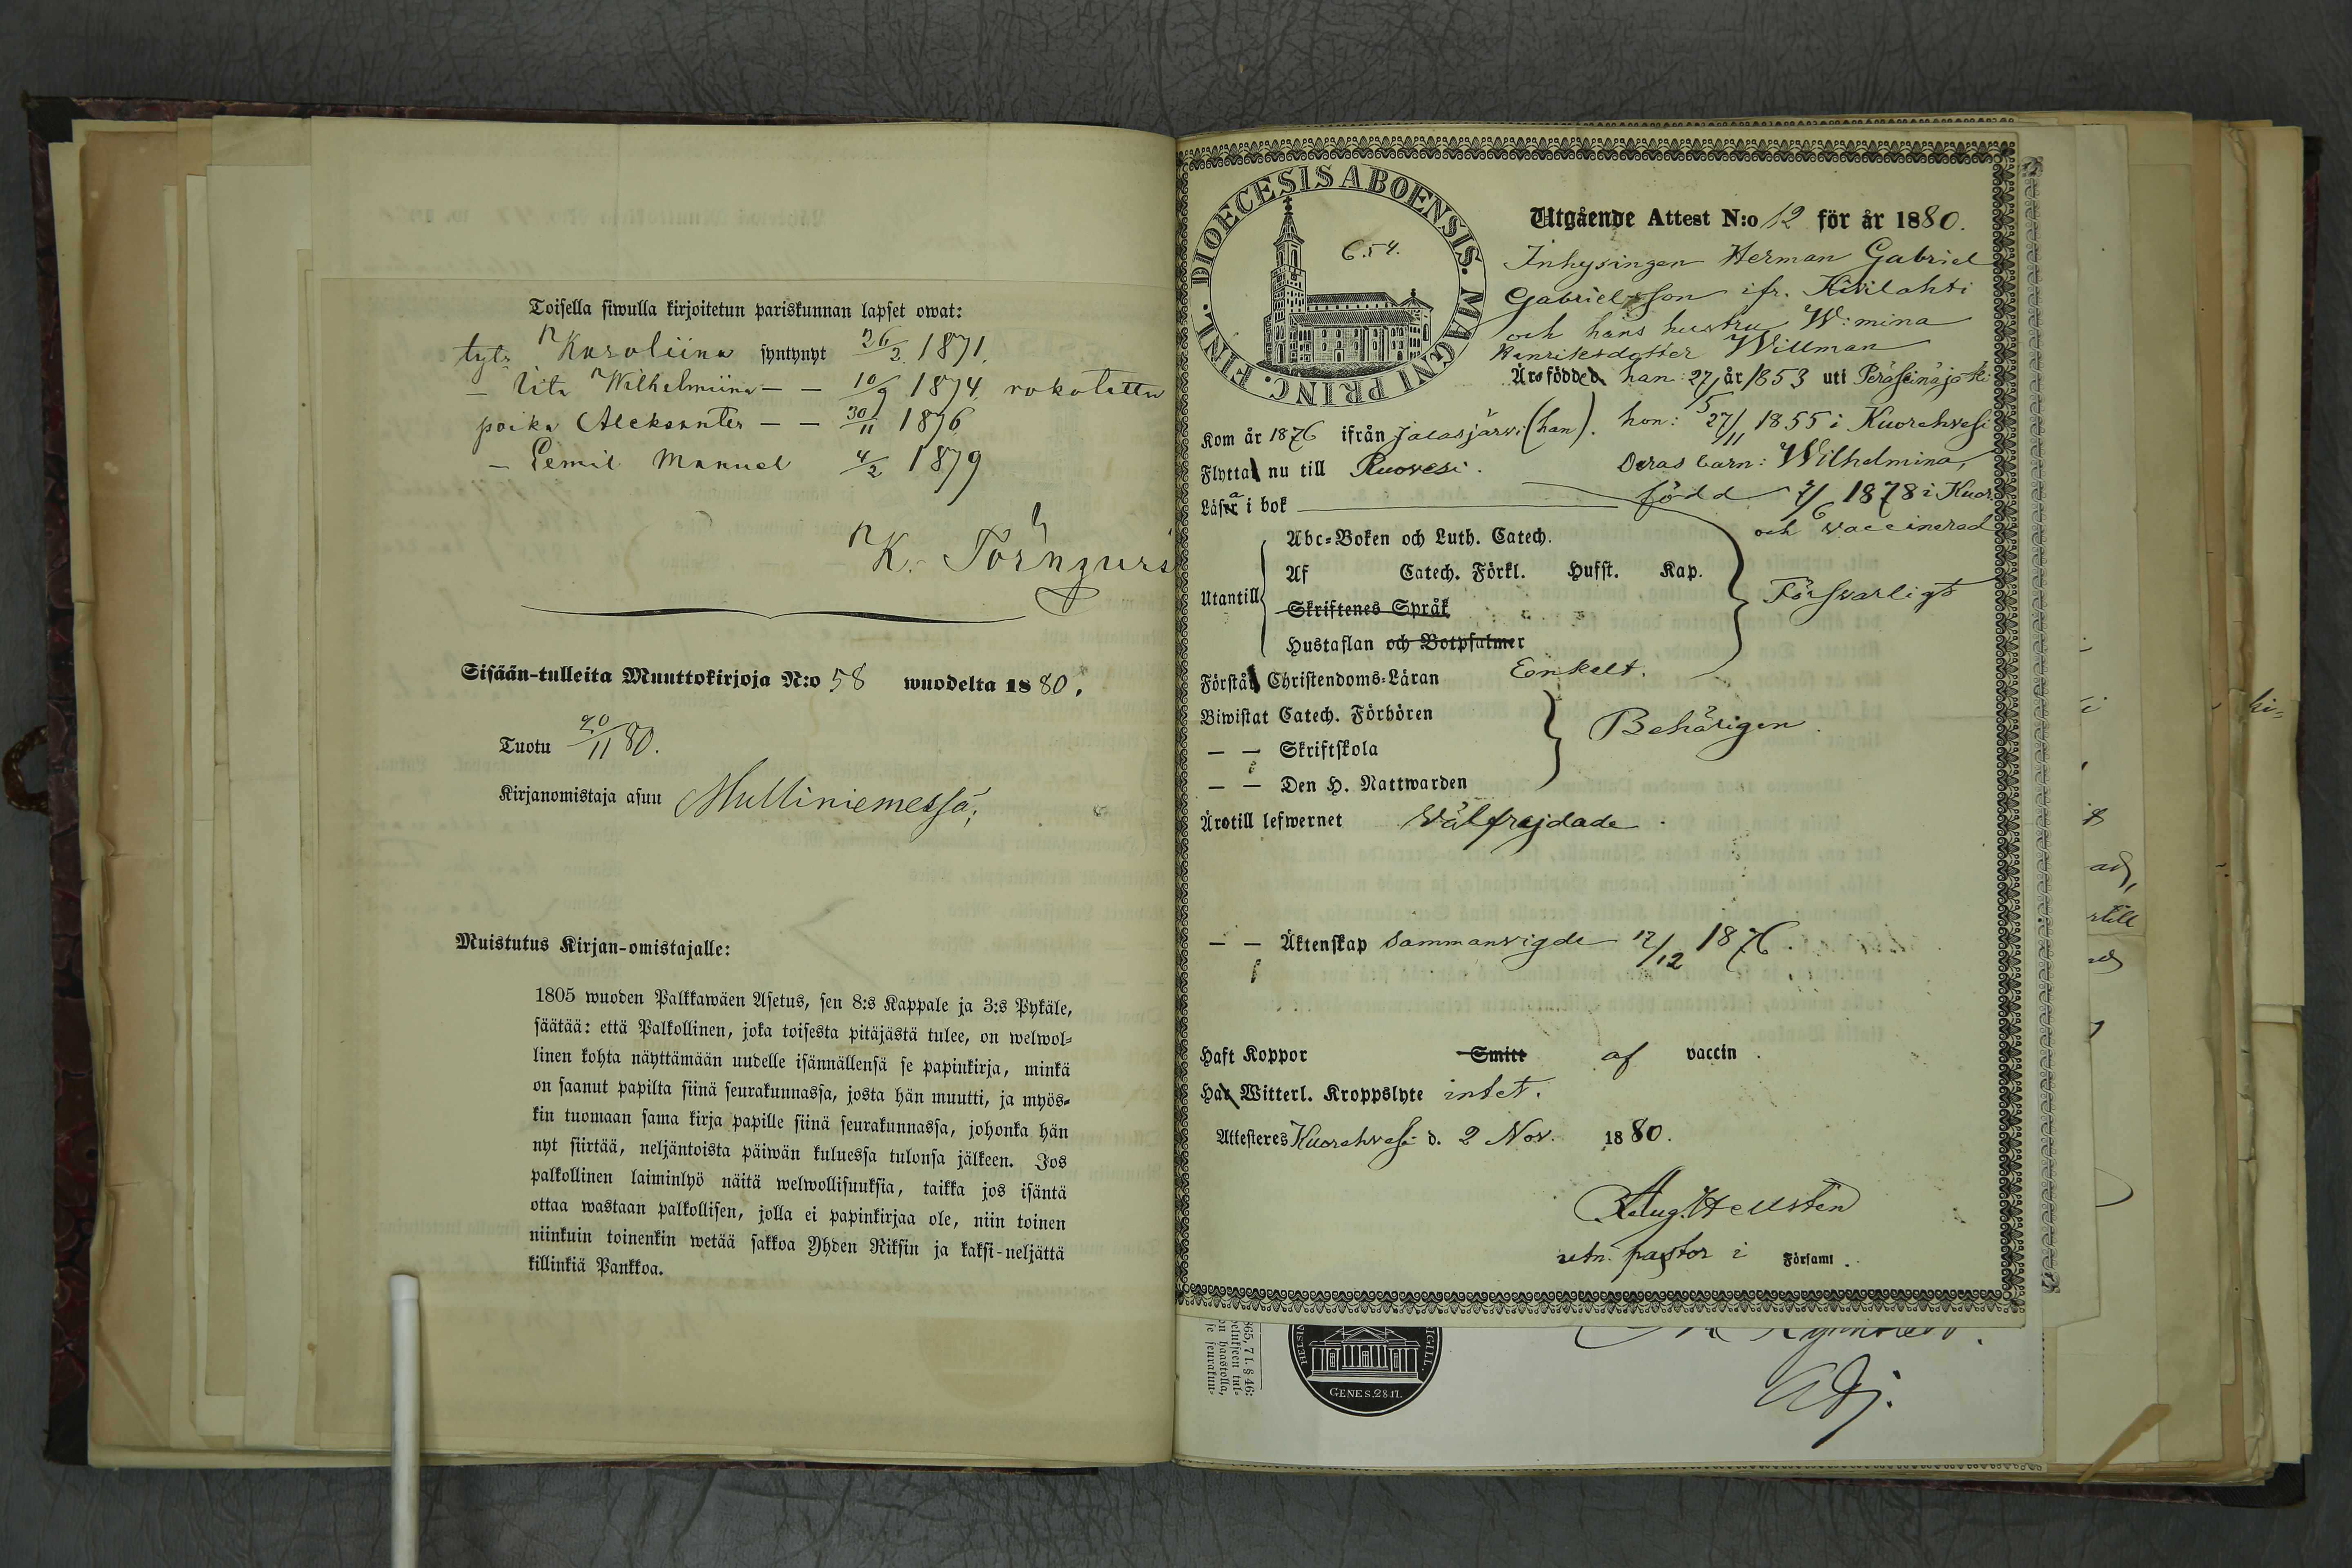 Toisella siwulla kirjoitetun pariskunnan lapset owat:
tytr Karoliina syntynyt 26/2 1871.
— Iita Wilhelmiina — — 10/9 1874, rokotettu
poika Aleksanter — — 30/11 1876
— Eemil Manuel 4/2 1879
K. Törnqurs
Sisään-tulleita Muuttokirjoja N:o 58 wuodelta 1880.
Tuotu 20/11 80.
Kirjanomistaja asuu Mulliniemessä;
Muistutus Kirjan-omistajalle:
1805 wuoden Palkkawäen Asetus, sen 8:s Kappale ja 3:s Pykäle,
säätää: että Palkollinen, joka toisesta pitäjästä tulee, on welwol-
linen kohta näyttämään uudelle isännällensä se papinkirja, minkä
on saanut papilta siinä seurakunnassa, josta hän muutti, ja myös-
kin tuomaan sama kirja papille siinä seurakunnassa, johonka hän
nyt siirtää, neljäntoista päiwän kuluessa tulonsa jälkeen. Jos
palkollinen laiminlyö näitä welwollisuuksia, taikka jos isäntä
ottaa wastaan palkollisen, jolla ei papinkirjaa ole, niin toinen
niinkuin toinenkin wetää sakkoa Yhden Riksin ja kaksi-neljättä
killinkiä Pankkoa.
DIOECESIS ABOENSIS. MAGNI PRINC. FINL.
654.
Utgående Attest N:o 12 för år 1880.
Inhysingen Herman Gabriel
Gabrielsson ifr. Kivilahti
och hans hustru W:mina
Henriksdotter Willman
Äro födde han: 27/5 år 1853 uti Peräseinäjoki
hon: 27/11 1855 i Kuorehvesi
Kom år 1876 ifrån Jalasjärvi (han).
Flytta nu till Ruovesi.
Deras barn: Wilhelmina,
född 7/6 1878 i Kuor.
och vaccinerad
Läsa i bok
Abc-Boken och Luth. Catech.
Af Catech. Förkl. Hufst. Kap.
Utantill
Försvarligt
Skriftenes Språk
Hustaflan och Botpsalmer
Förstå Christendoms-Läran Enkelt.
Biwistat Catech. Förhören
Behörigen.
— — Skriftskola
— — Den H. Nattwarden
Äro till lefwernet Välfrejdade.
— — Äktenskap Sammanvigde 17/12 1876.
Haft Koppor Smitt af vaccin.
Ha Witterl. Kroppslyte intet.
Attesteres Kuorehvesi d. 2 Nov. 1880.
Aug. Hellsten
pastor i Församl.
GENES. 28 17.
Adj.